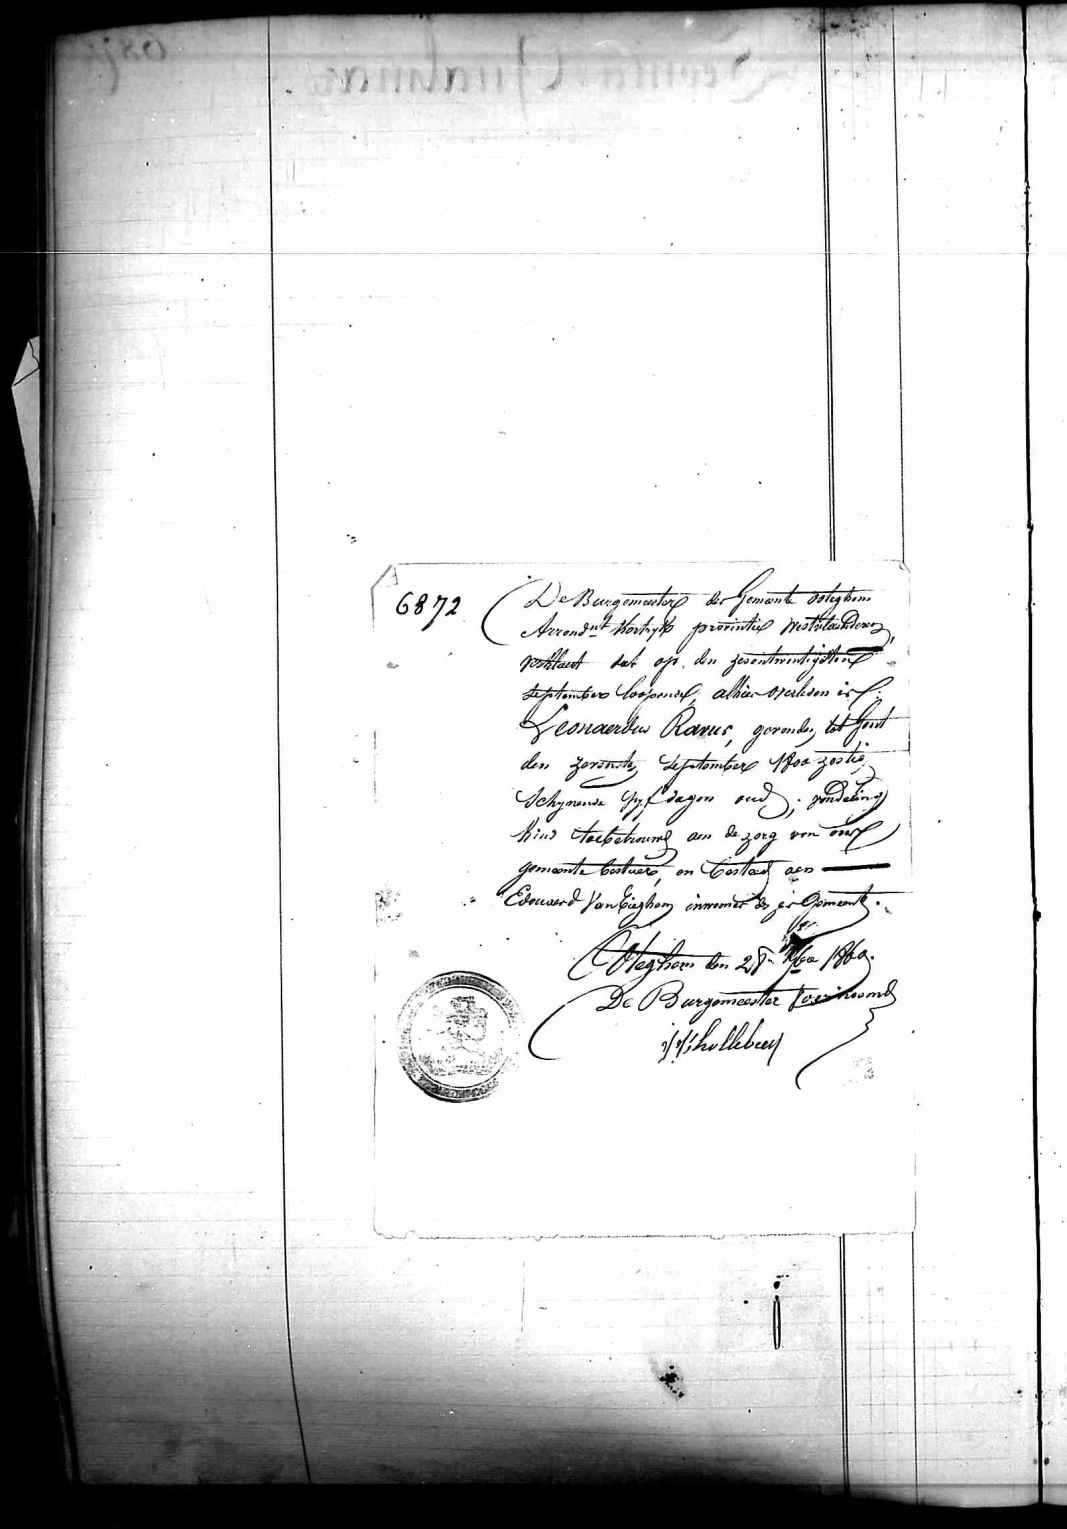 6872
De Burgemeester der Gemeente Oteghem
Arrond.nt Kortryk provintie Westvlaenderen,
verklaert dat op den zesentwintigsten
september loopende, alhier overleden is
Leonaerdus Ravus, gevonden tot Gent
den september 1800 zestig
schynende vyf dagen oud, vondeling
kind toebetrouwd aen de zorg van ons
gemeente bestuer, en besteed aen
Edouard Van Eeghem inwoner dezer Gemeente.
Oteghem den 28n 7ber 1860.
De Burgemeester voornoemd